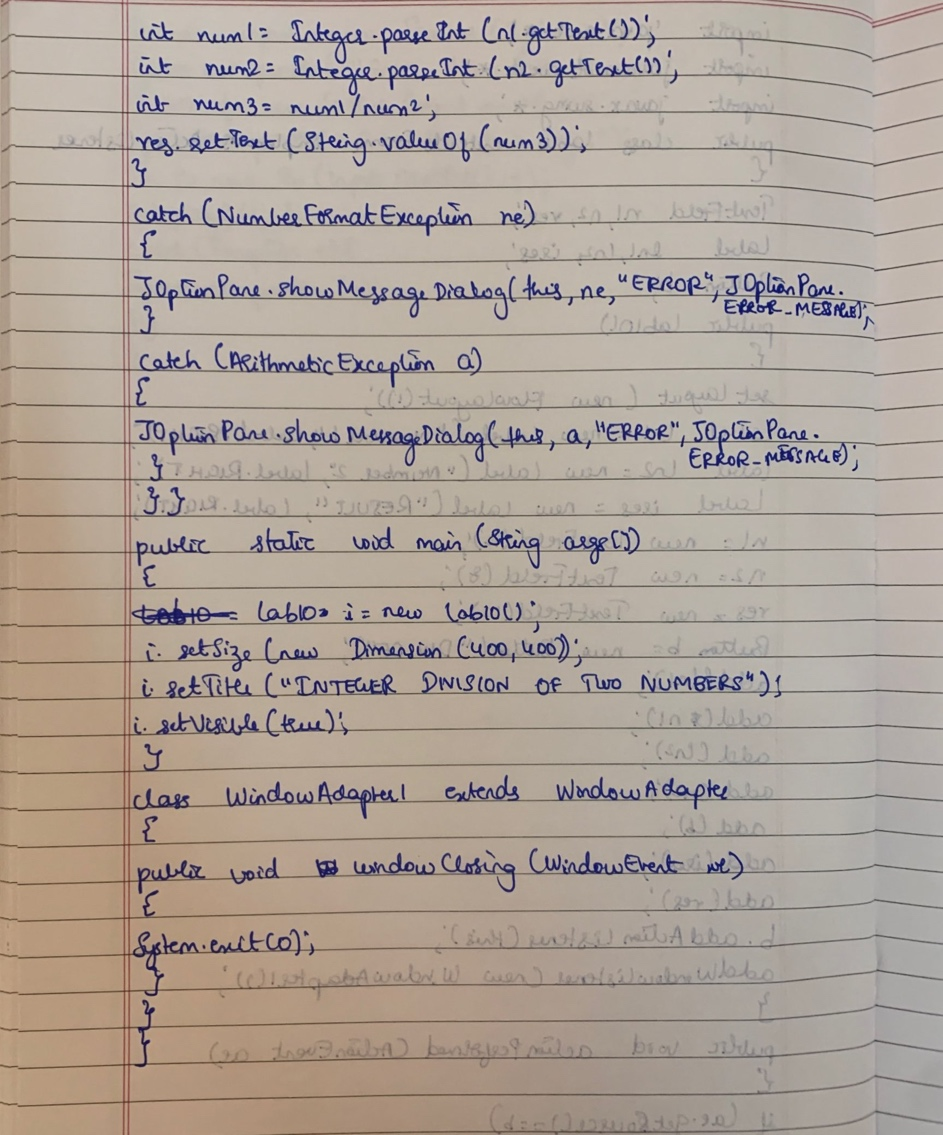 int num1 = Integer.parseInt (n1.getText());
int num2 = Integer.parseInt (n2.getText());
int num3 = num1/num2;
res.setText (String.valueOf (num3));
}
catch (NumberFormatException ne)
{
JOptionPane.showMessageDialog(this, ne, "ERROR", JOptionPane.
ERROR_MESSAGE);
}
catch (ArithmeticException a)
{
JOptionPane.showMessageDialog(this, a, "ERROR", JOptionPane.
ERROR_MESSAGE);
}
}.}
public static void main (String args[])
{
lab10 i = new lab10();
i.setSize (new Dimension (400,400));
i.setTitle ("INTEGER DIVISION OF TWO NUMBERS");
i.setVisible (true);
}
class WindowAdapter1 extends WindowAdapter
{
public void windowClosing (WindowEvent we)
{
System.exit(0);
}
}
}